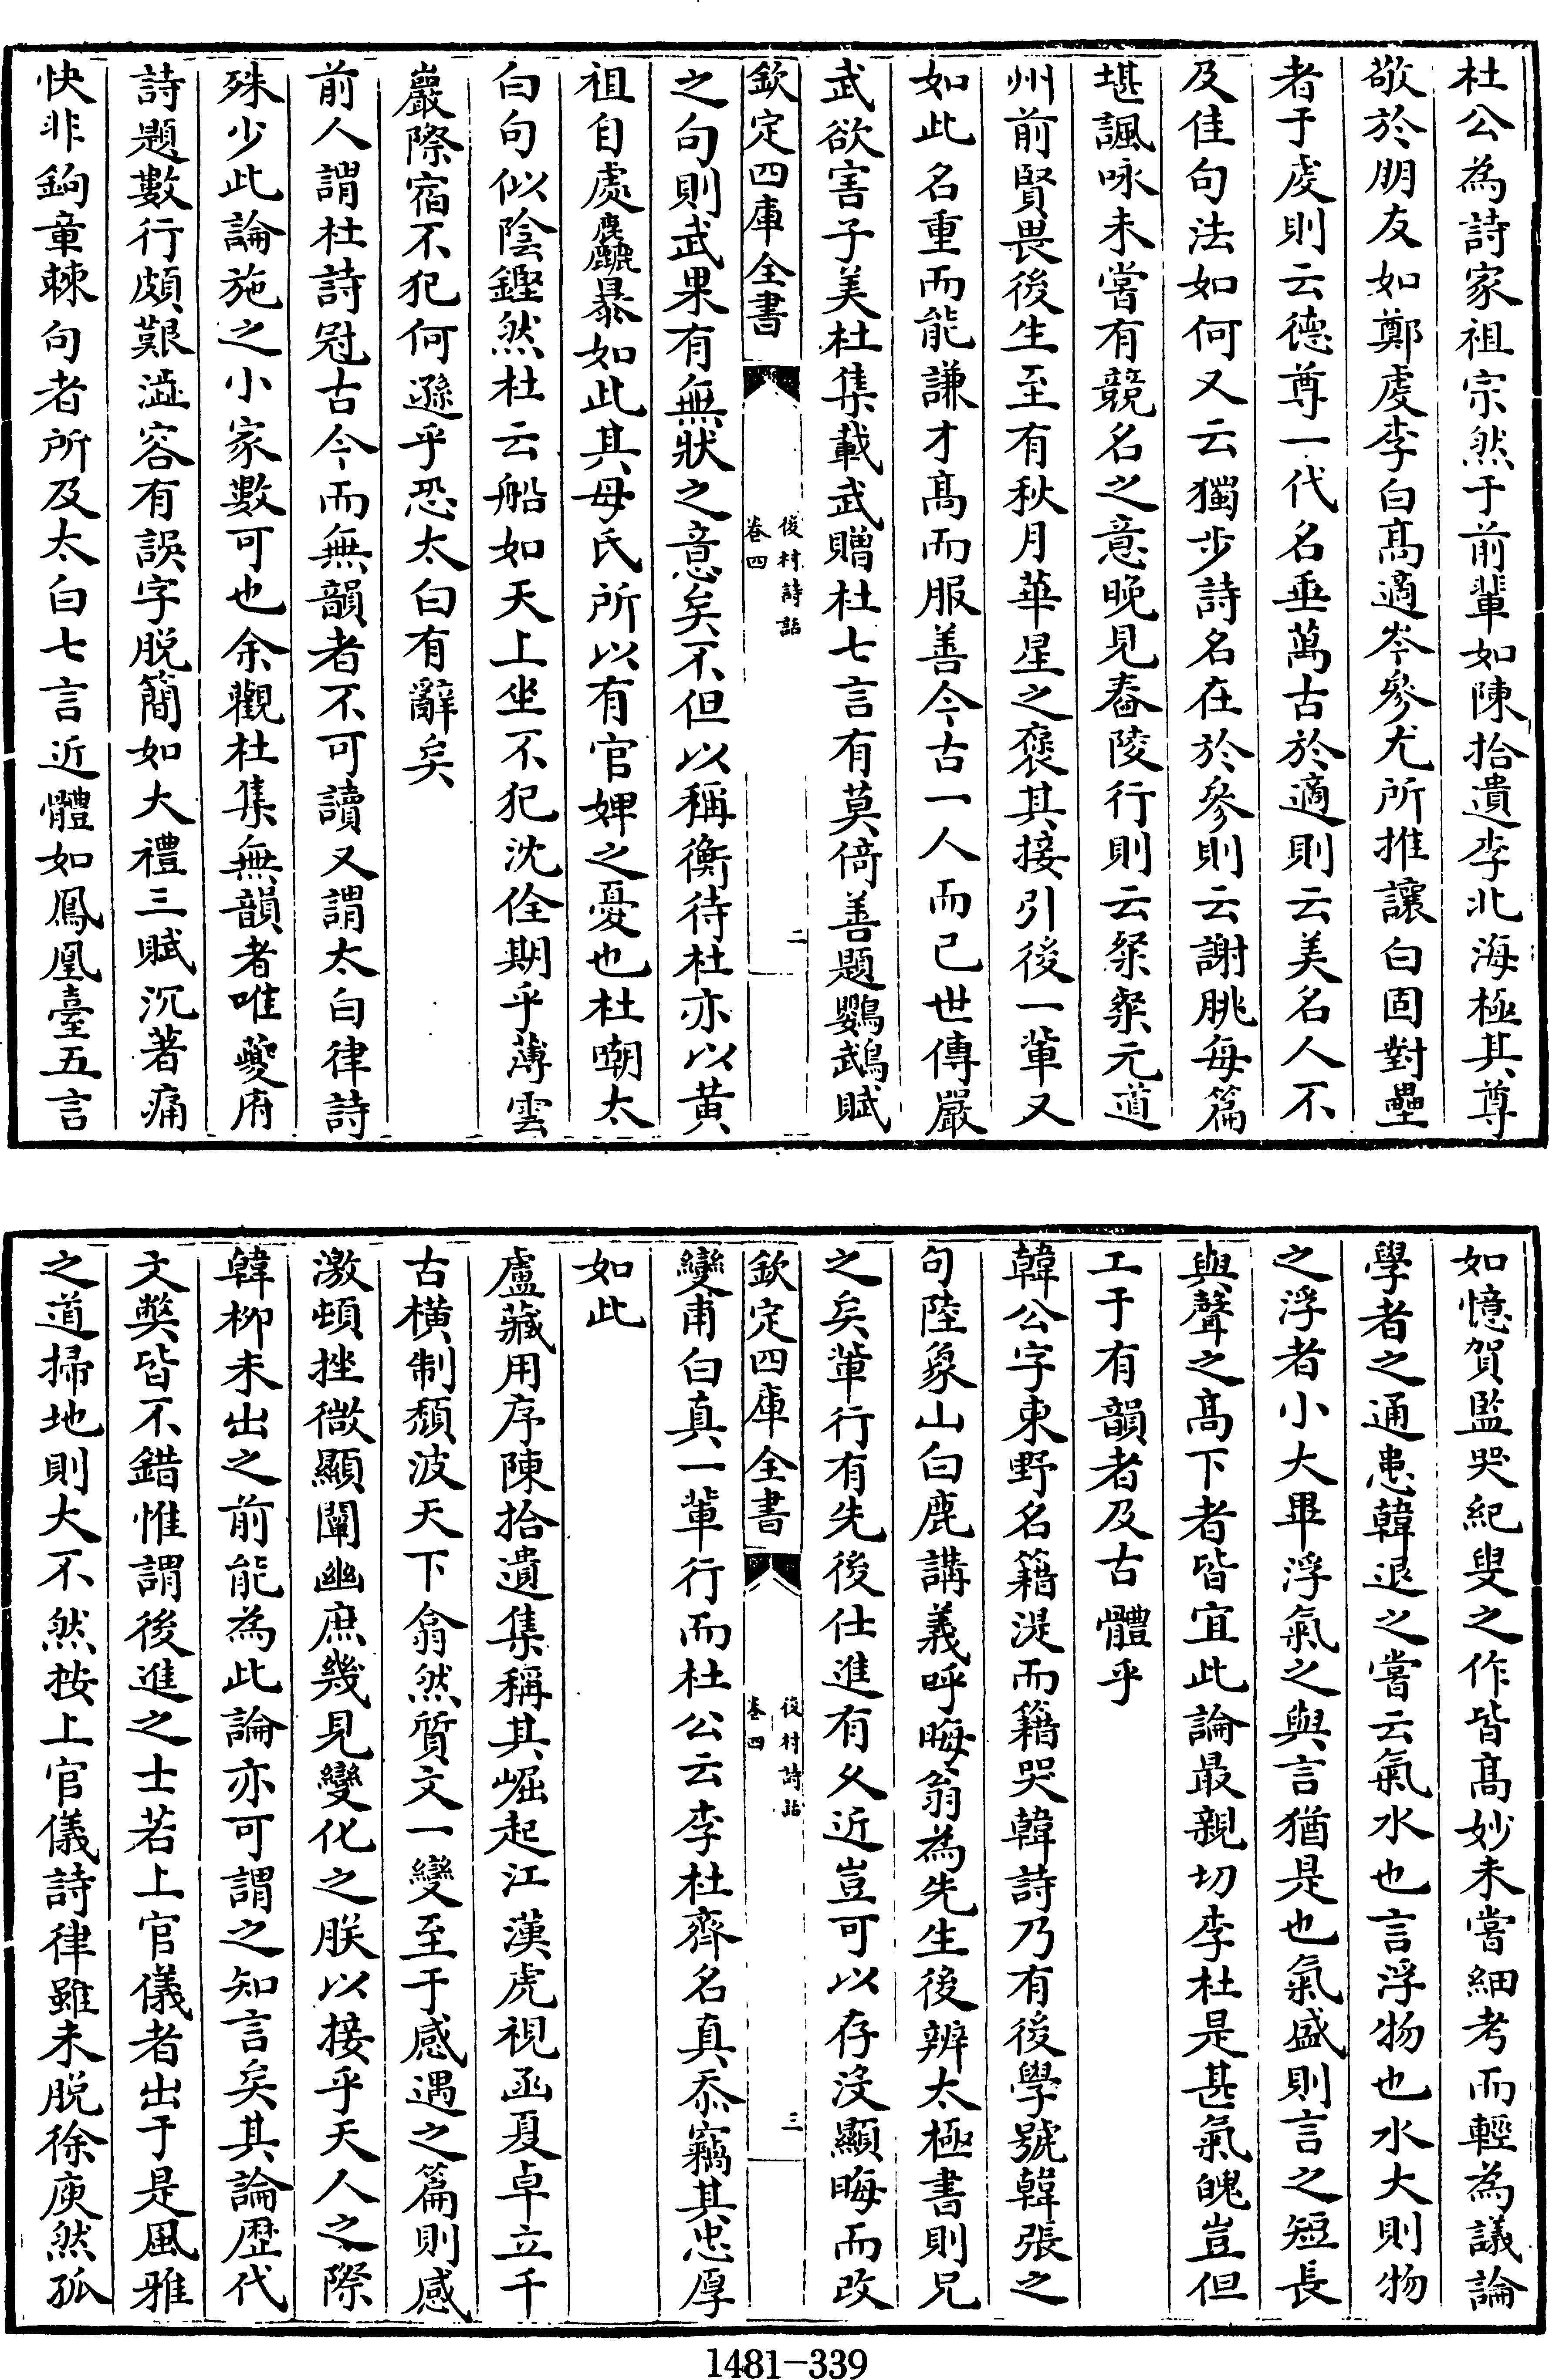 杜公為詩家祖宗然于前輩如陳拾遺李北海極其尊
敬於朋友如鄭䖍李白髙適岑參尤所推讓白固對壘
者于䖍則云德尊一代名垂萬古於適則云美名人不
及佳句法如何又云獨步詩名在於參則云謝朓每篇
堪諷咏未嘗有競名之意晚見舂陵行則云粲粲元道
州前賢畏後生至有秋月華星之襃其接引後一輩又
如此名重而能謙才髙而服善今古一人而已世傳嚴
武欲害子美杜集載武贈杜七言有莫倚善題鸚鵡賦
欽定四庫全書
後村詩話
卷四
二
之句則武果有無狀之意矣不但以稱衡待杜亦以黄
祖自處麤暴如此其母氏所以有官婢之憂也杜嘲太
白句似陰鏗然杜云船如天上坐不犯沈佺期乎薄雲
巖際宿不犯何遜乎恐太白有辭矣
前人謂杜詩冠古今而無韻者不可讀又謂太白律詩
殊少此論施之小家數可也余觀杜集無韻者唯夔府
詩題數行頗艱澁容有誤字脱簡如大禮三賦沉著痛
快非鉤章棘句者所及太白七言近體如鳳凰臺五言
如憶賀監哭紀叟之作皆髙妙未嘗細考而輕為議論
學者之通患韓退之嘗云氣水也言浮物也水大則物
之浮者小大畢浮氣之與言猶是也氣盛則言之短長
與聲之髙下者皆宜此論最親切李杜是甚氣魄豈但
工于有韻者及古體乎
韓公字東野名籍湜而籍哭韓詩乃有後學號韓張之
句陸象山白鹿講義呼晦翁為先生後辨太極書則兄
之矣輩行有先後仕進有久近豈可以存沒顯晦而改
欽定四庫全書
後村詩話
卷四
三
變甫白真一輩行而杜公云李杜齊名真忝竊其忠厚
如此
盧藏用序陳拾遺集稱其崛起江漢虎視函夏卓立千
古横制頽波天下翕然質文一變至于感遇之篇則感
激頓挫微顯闡幽庶幾見變化之朕以接乎天人之際
韓柳未出之前能為此論亦可謂之知言矣其論歴代
文獘皆不錯惟謂後進之士若上官儀者出于是風雅
之道掃地則大不然按上官儀詩律雖未脱徐庾然孤
1481-339